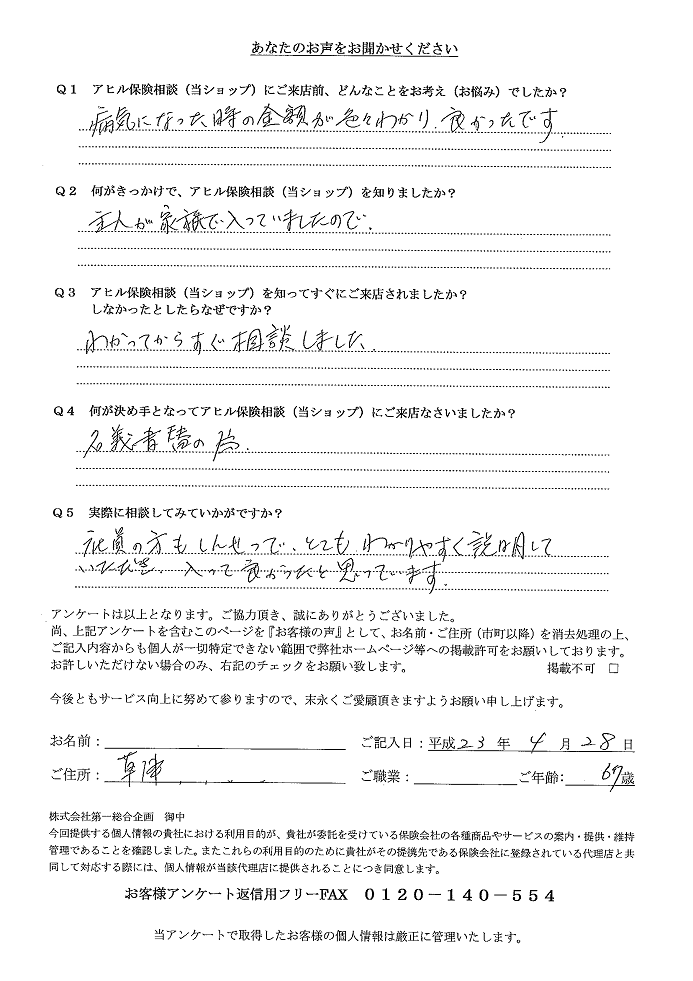 あなたのお声をお聞かせください
Q1 アヒル保険相談(当ショップ)にご来店前、どんなことをお考え(お悩み)でしたか?
病気になった時の金額が色々わかり、良かったです。
Q2 何がきっかけで、アヒル保険相談(当ショップ)を知りましたか?
主人が家族で入っていましたので、
Q3 アヒル保険相談(当ショップ)を知ってすぐにご来店されましたか?
しなかったとしたらなぜですか?
わかってからすぐ相談しました、
Q4 何が決め手となってアヒル保険相談(当ショップ)にご来店なさいましたか?
名義者の為、
Q5 実際に相談してみていかがですか?
社員の方もしんせつで、とても、わかりやすく説明して
いただき、入って良かったと思っています。
アンケートは以上となります。ご協力頂き、誠にありがとうございました。
尚、上記アンケートを含むこのページを『お客様の声』として、お名前・ご住所(市町以降)を消去処理の上、
ご記入内容からも個人が一切特定できない範囲で弊社ホームページ等への掲載許可をお願いしております。
お許しいただけない場合のみ、右記のチェックをお願い致します。 掲載不可 □
今後ともサービス向上に努めて参りますので、末永くご愛顧頂きますようお願い申し上げます。
お名前: ご記入日:平成23年 4月 28日
ご住所: 草津 ご職業: ご年齢: 67歳
株式会社第一総合企画 御中
今回提供する個人情報の貴社における利用目的が、貴社が委託を受けている保険会社の各種商品やサービスの案内・提供・維持
管理であることを確認しました。またこれらの利用目的のために貴社がその提携先である保険会社に登録されている代理店と共
同して対応する際には、個人情報が当該代理店に提供されることにつき同意します。
お客様アンケート返信用フリーFAX 0120-140-554
当アンケートで取得したお客様の個人情報は厳正に管理いたします。